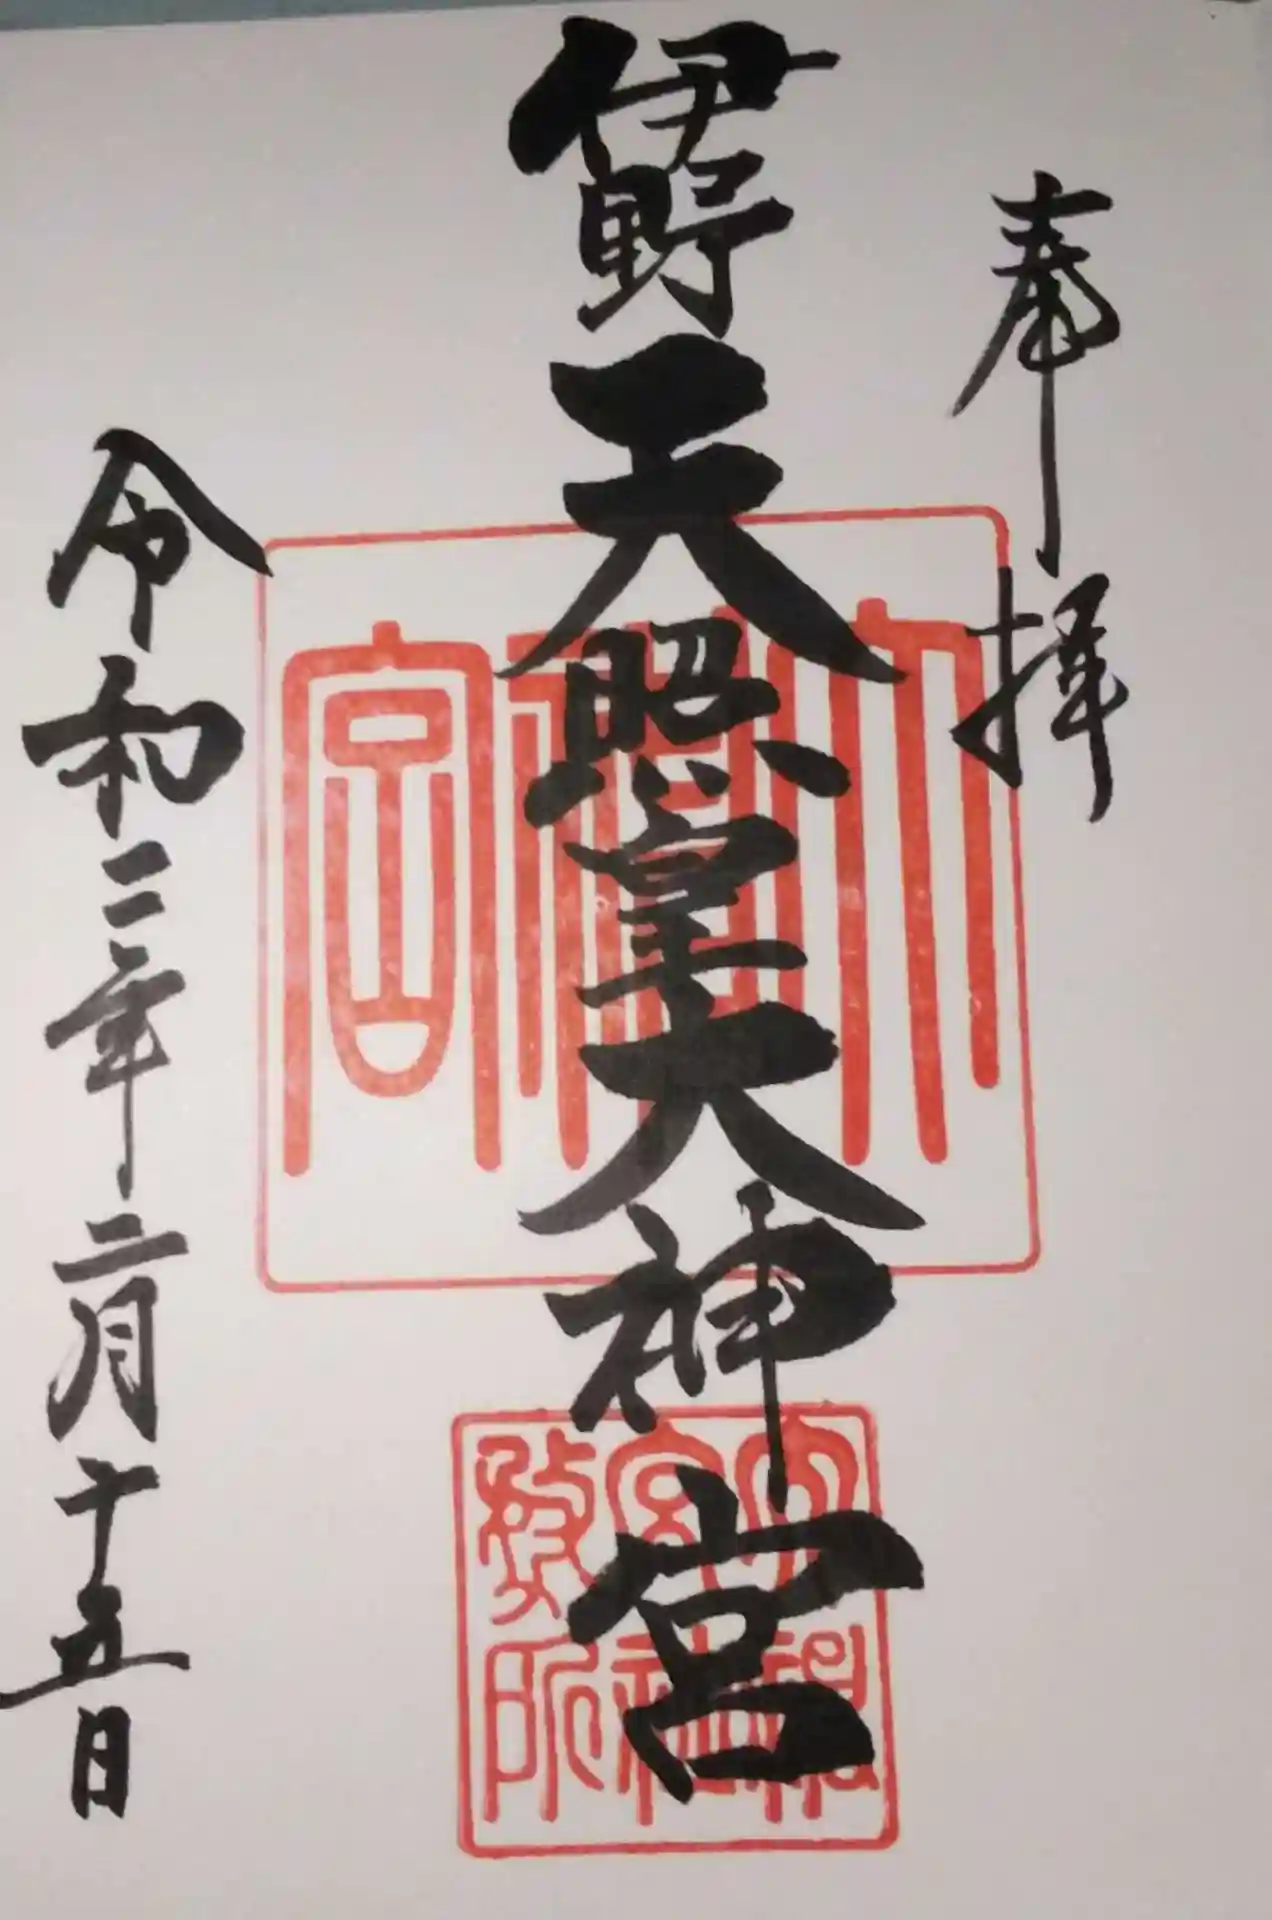 奉拝
伊野天照皇大神宮
大神宮
令和二年二月十五日